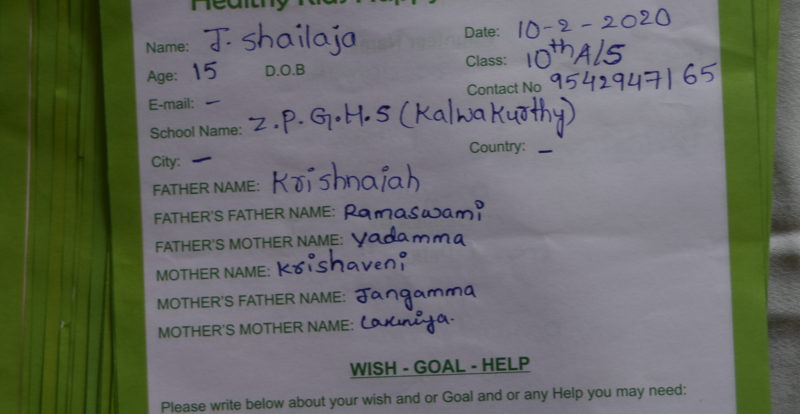 Healthy Kids Happy
Name: J. shailaja Date: 10-2-2020
Age: 15 D.O.B Class: 10th A/S
E-mail: – Contact No 9542947165
School Name: Z.P.G.H.S (Kalwakurthy)
City: – Country: –
FATHER NAME: Krishnaiah
FATHER'S FATHER NAME: Ramaswami
FATHER'S MOTHER NAME: Yadamma
MOTHER NAME: Krishaveni
MOTHER'S FATHER NAME: Jangamma
MOTHER'S MOTHER NAME:
WISH - GOAL - HELP
Please write below about your wish and or Goal and or any Help you may need: